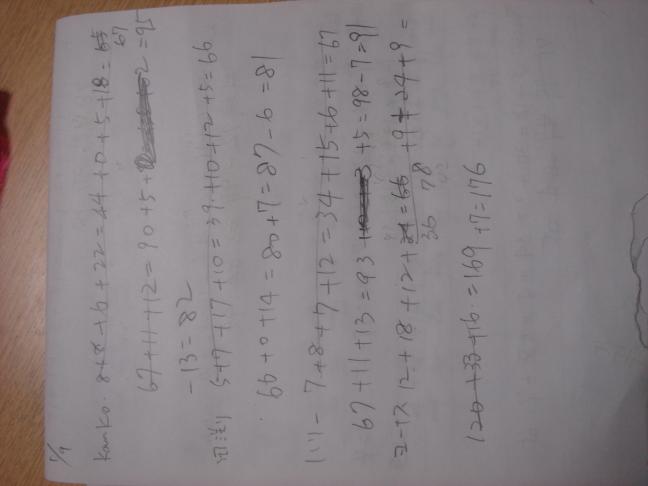 1/9
Kanko. 8+8+6+22=44+0+5+18=67
67+11+12=90+5+ =95
-13=82
5+7+17+10=39+10+12+5=66
66+0+14=80+7=87-6=81
ハリー 7+8+7+12=34+15+6+11=67
67+11+13=93 +5=98-7=91
12+18+12+ 36 78 +9+24+9=
120+33+16=169+7=176